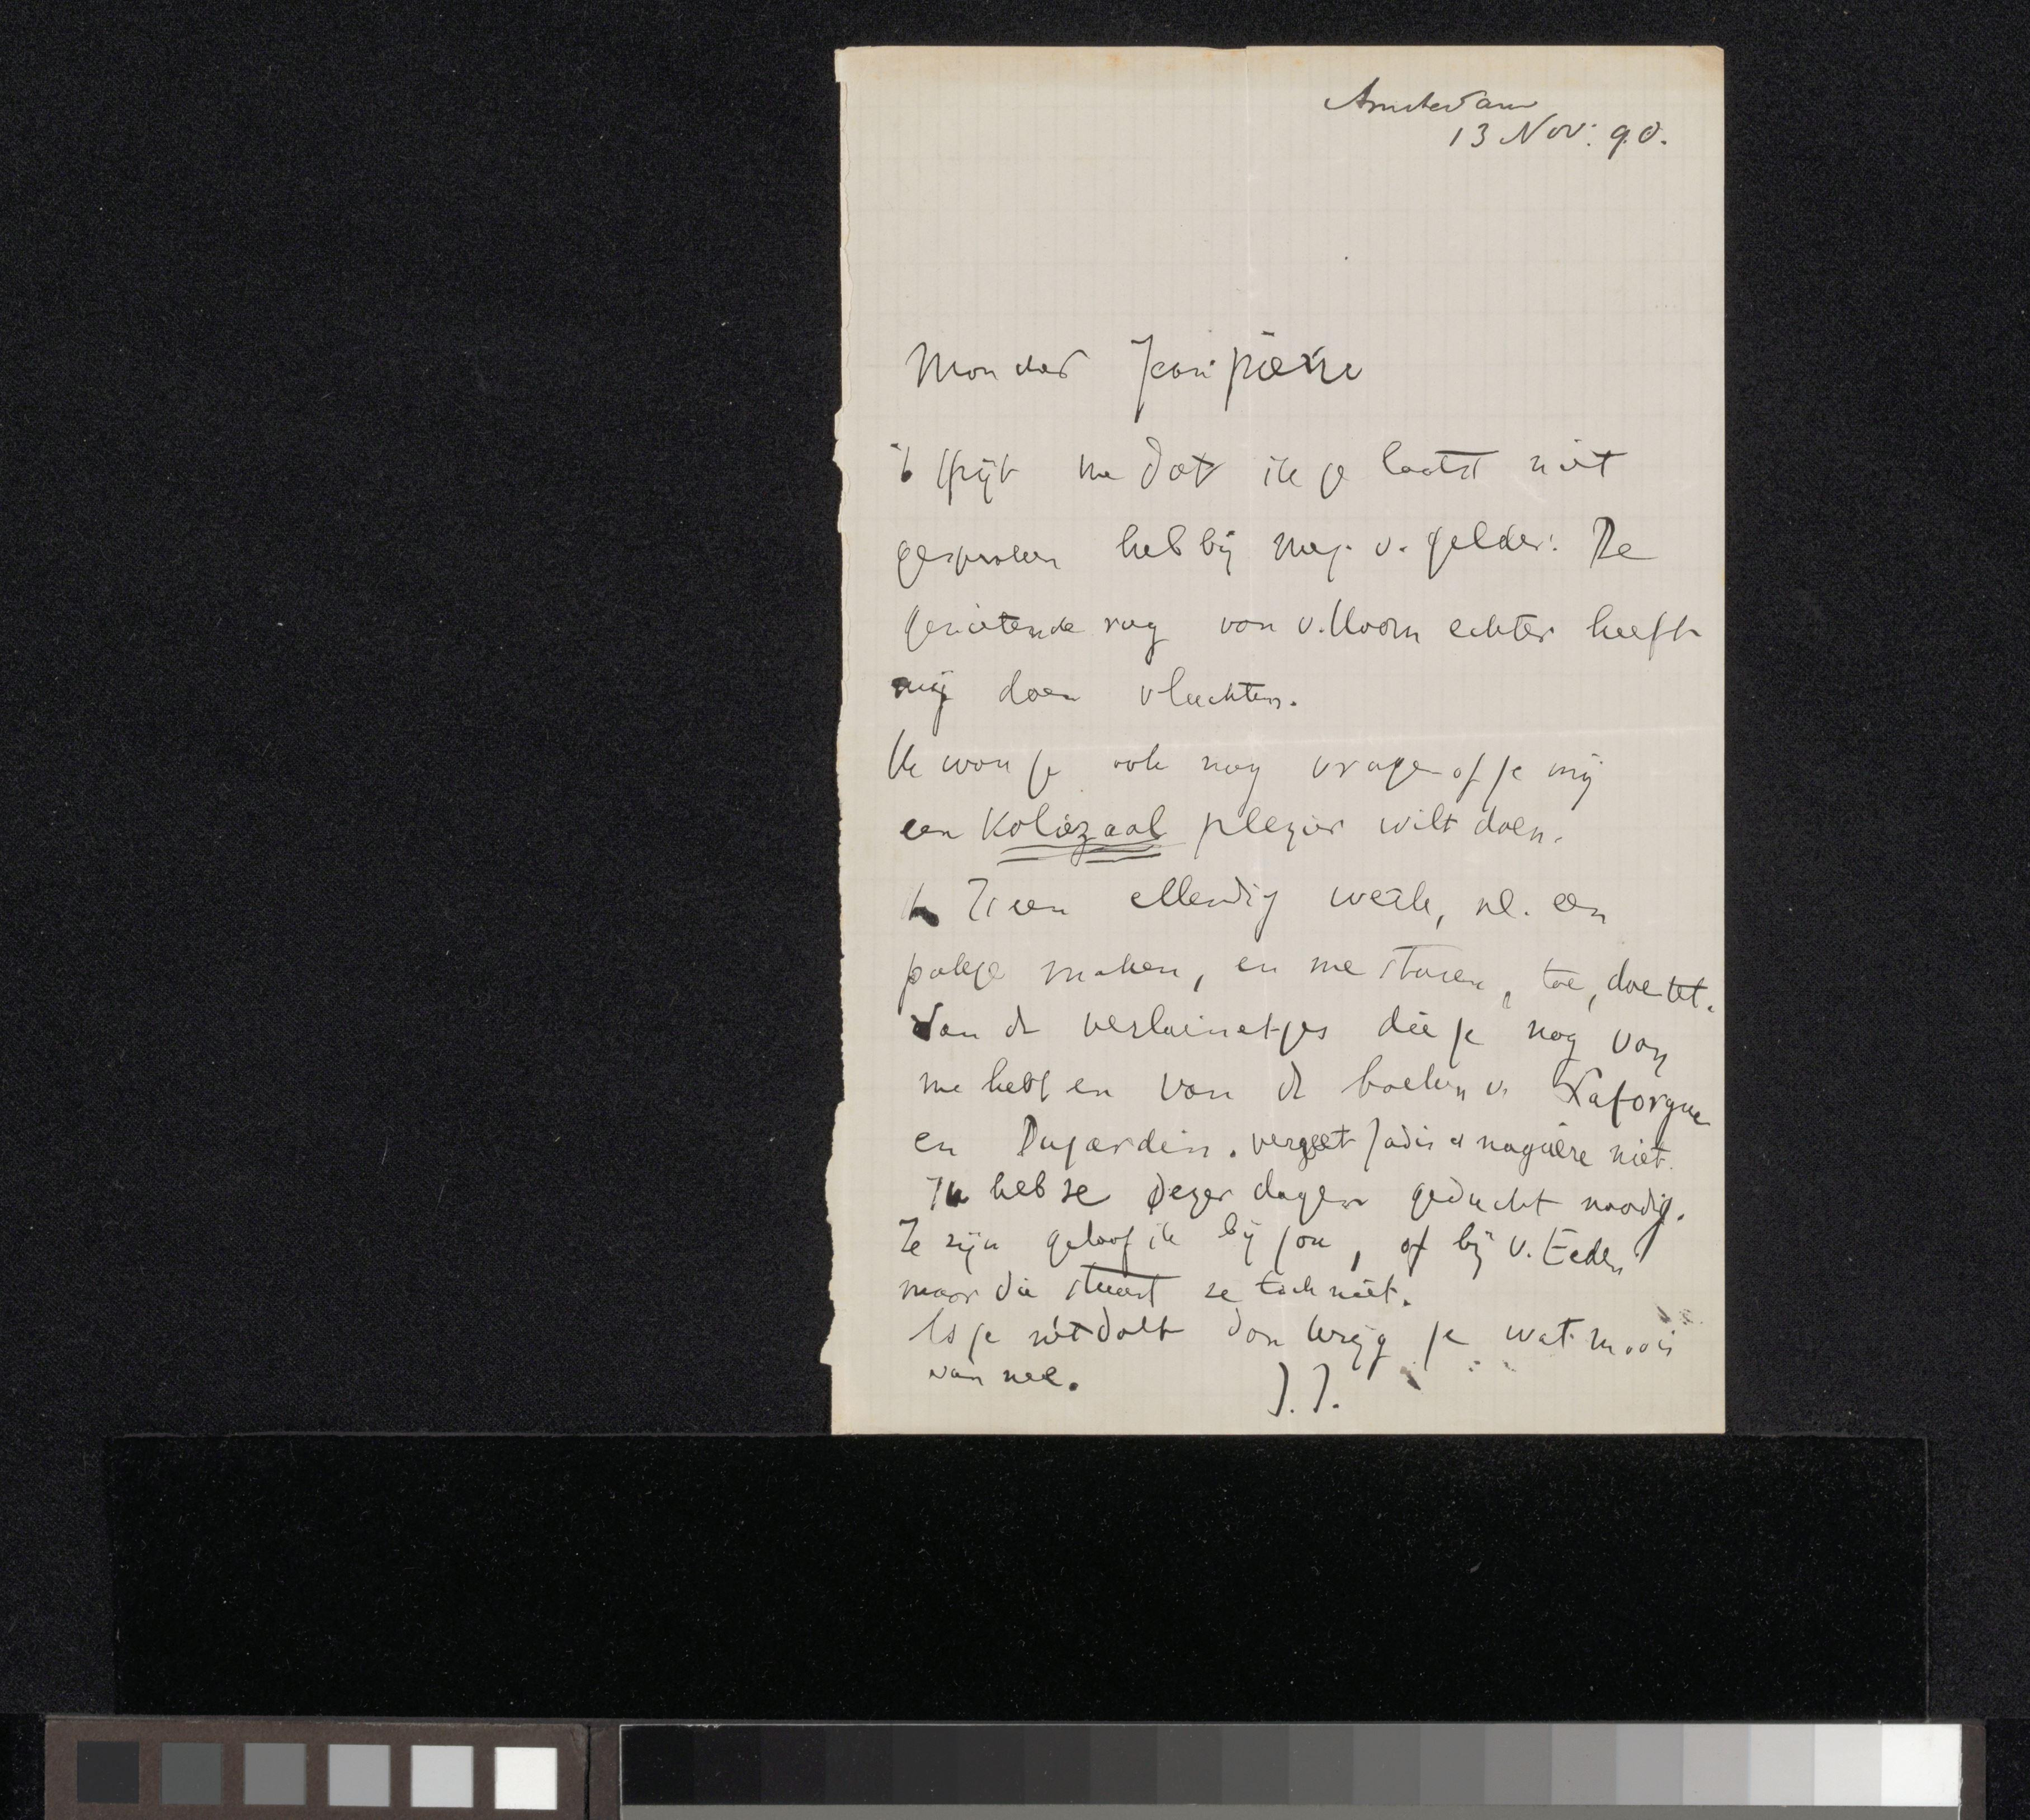 Amsterdam
13 Nov: 90.
Mon cher Jean pierre
't spijt me dat ik je laatst niet
gesproken heb bij mej. v. gelder. De
genietende rug van v. Hoorn echter heeft
mij doen vluchten.
Ik wou je ook nog vragen of je mij
een kolozaal plezier wilt doen.
't Is een ellendig werk, nl. een
pakje maken, en me sturen, toe, doe het.
Van de verlainetjes die je nog van
me hebt en van de boeken v. Laforgue
en Dujardin. vergeet Jadis et naguère niet.
Ik heb ze dezer dagen geducht noodig.
Ze zijn geloof ik bij jou, of bij v. Eeden
maar die stuurt ze toch niet.
As je 't doet dan krijg je wat moois
van me.
J.I.